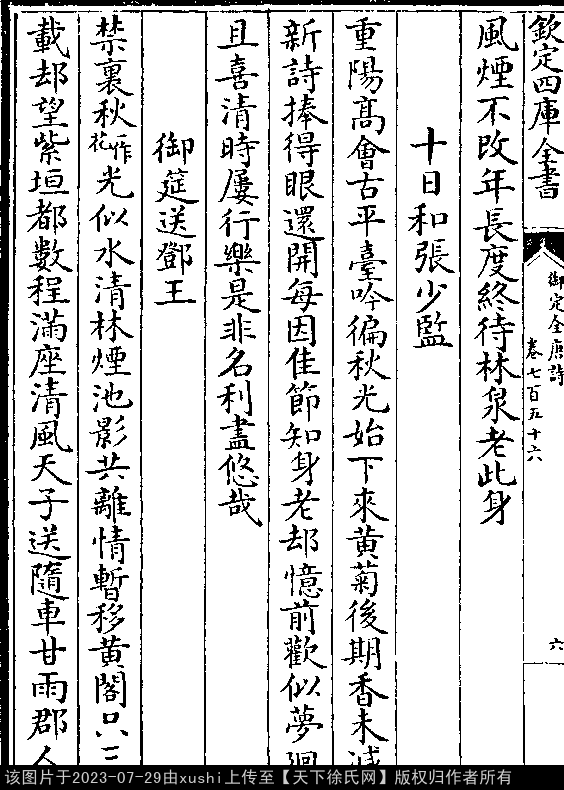 欽定四庫全書
御定全唐詩
卷七百五十六
六
風煙不改年長度終待林泉老此身
十日和張少監
重陽髙會古平臺吟徧秋光始下來黄菊後期香未減
新詩捧得眼還開每因佳節知身老却憶前歡似夢
且喜清時屢行樂是非名利盡悠哉
御筵送鄧王
禁裏秋一作花光似水清林煙池影共離情暫移黄閣只三
載却望紫垣都數程滿座清風天子送隨車甘雨郡人
该图片于2023-07-29由xushi上传至【天下徐氏网】版权归作者所有